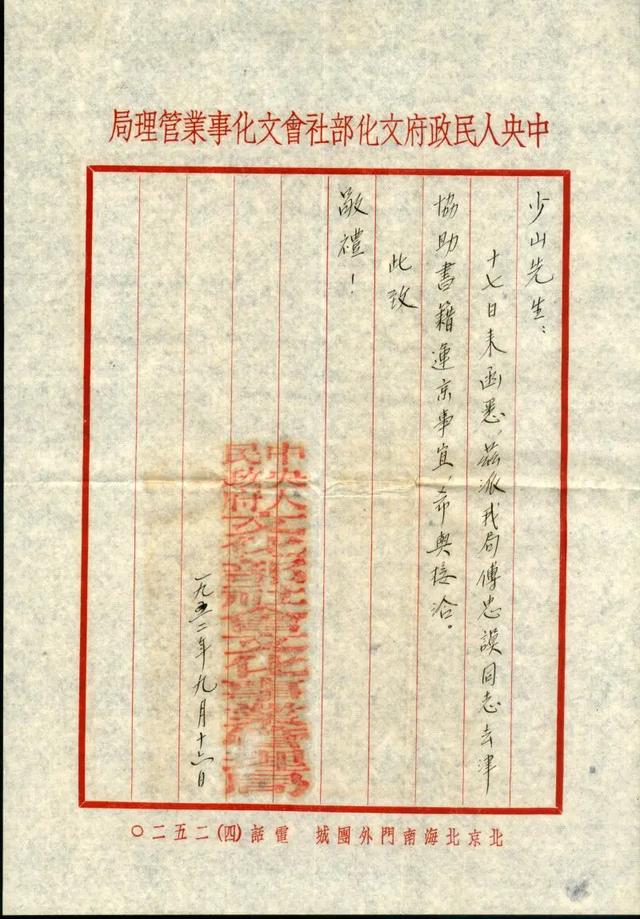 中央人民政府文化部社會文化事業管理局
少山先生：
十七日来函悉，茲派我局傅忠謨同志去津
協助書籍運京事宜，希與接洽。
此致
敬禮！
中央人
民政府文化部社會文化事業管理局
一九五二年九月十六日
北京北海南門外團城 電話(四)二五二〇